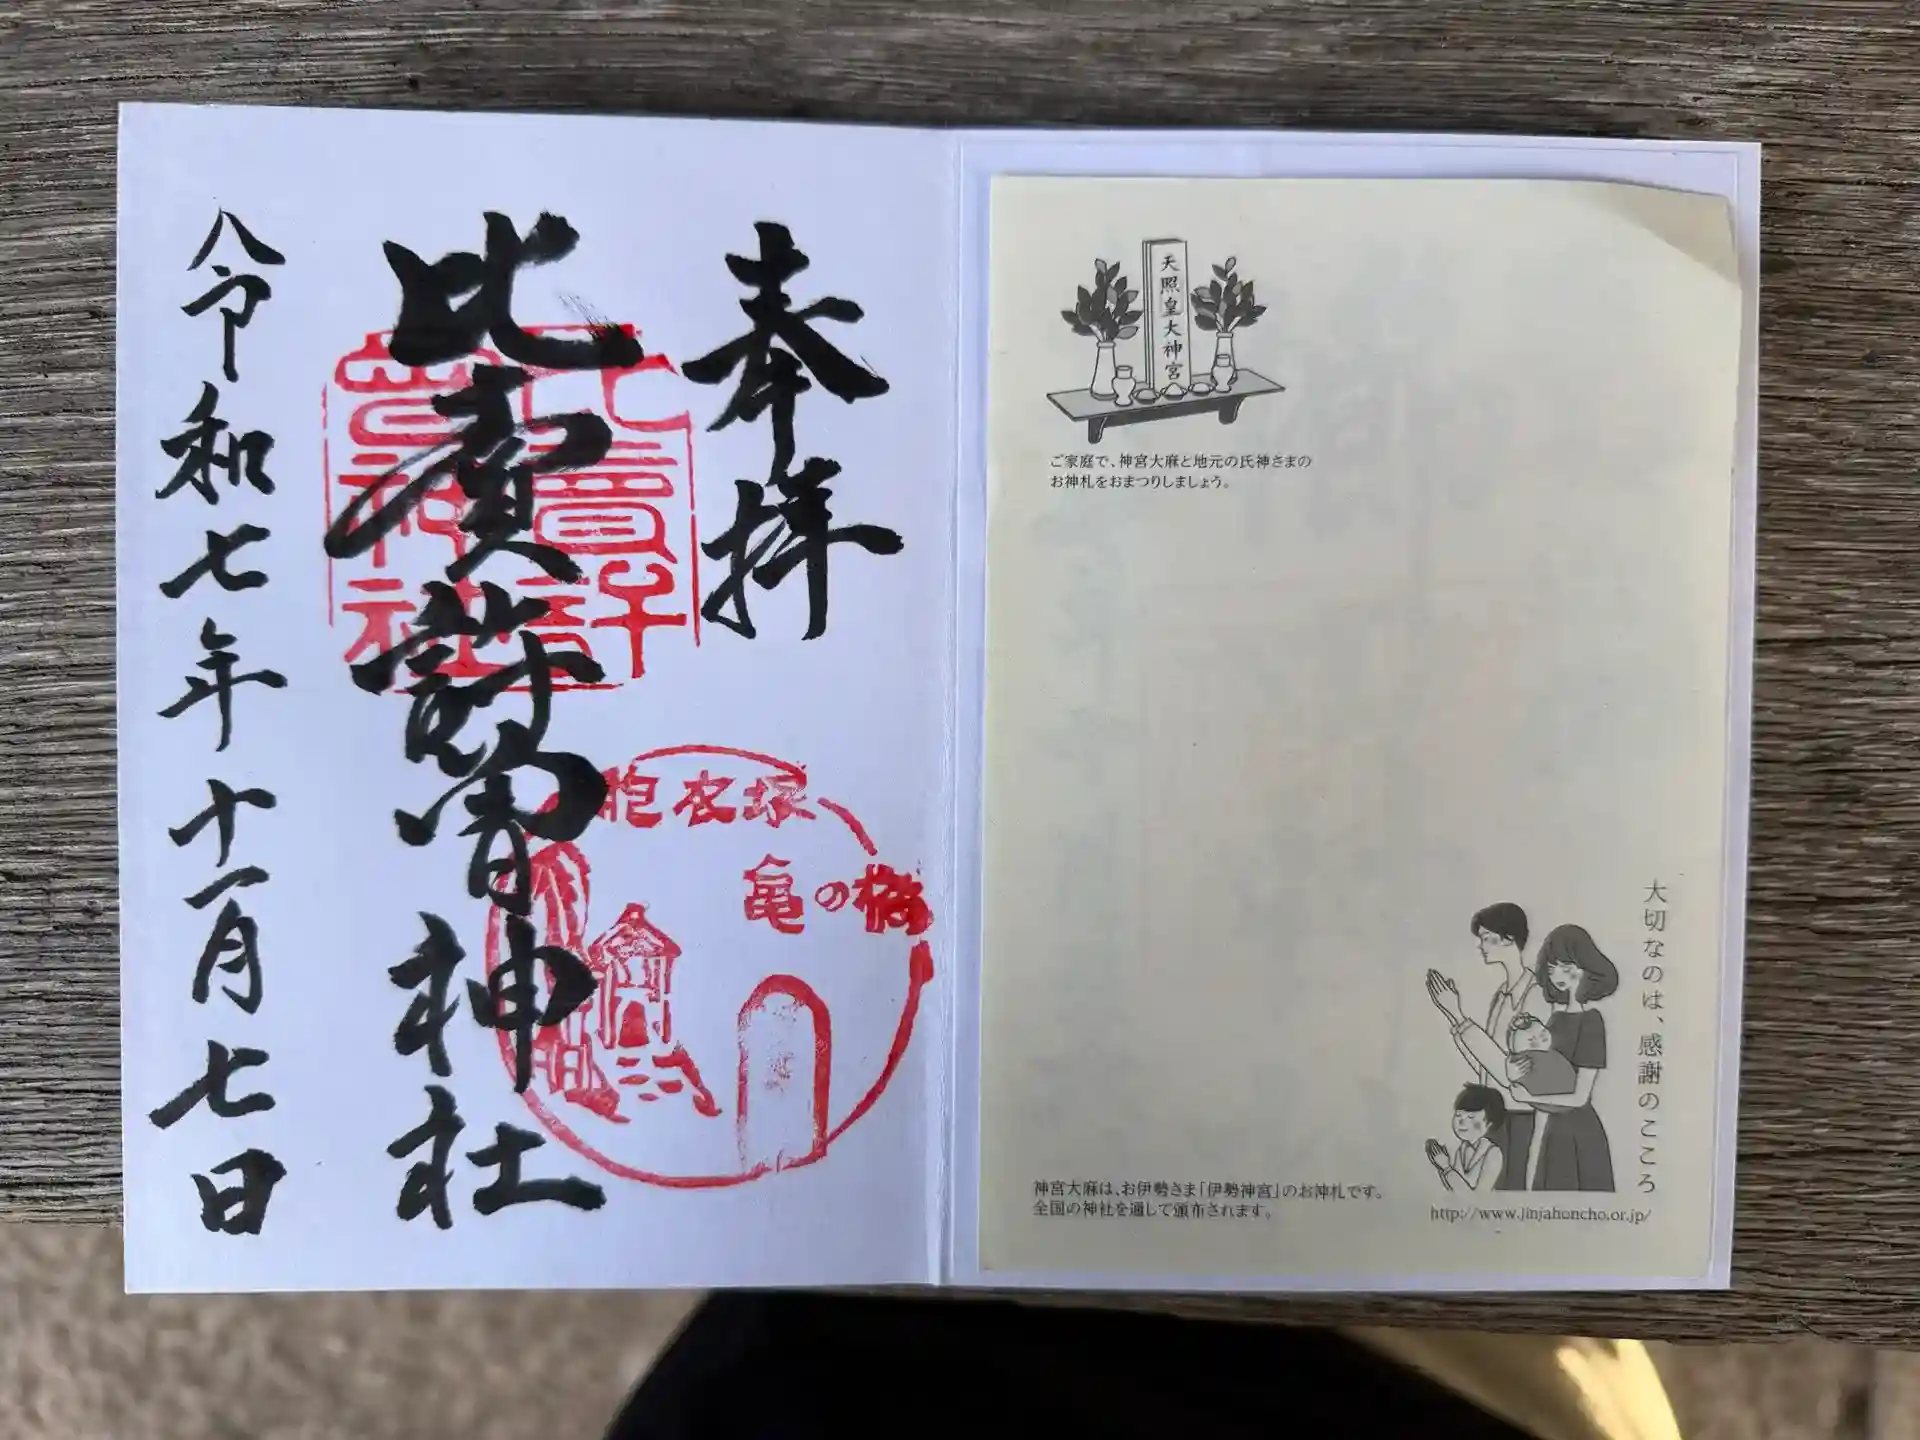 奉拝
比賣許曽神社
令和七年十一月七日
比賣許
曽神社
胞衣塚
亀の橋
天照皇大神宮
ご家庭で、神宮大麻と地元の氏神さまの
お神札をおまつりしましょう。
大切なのは、感謝のこころ
神宮大麻は、お伊勢さま「伊勢神宮」のお神札です。
全国の神社を通して頒布されます。
http://www.jinjahoncho.or.jp/